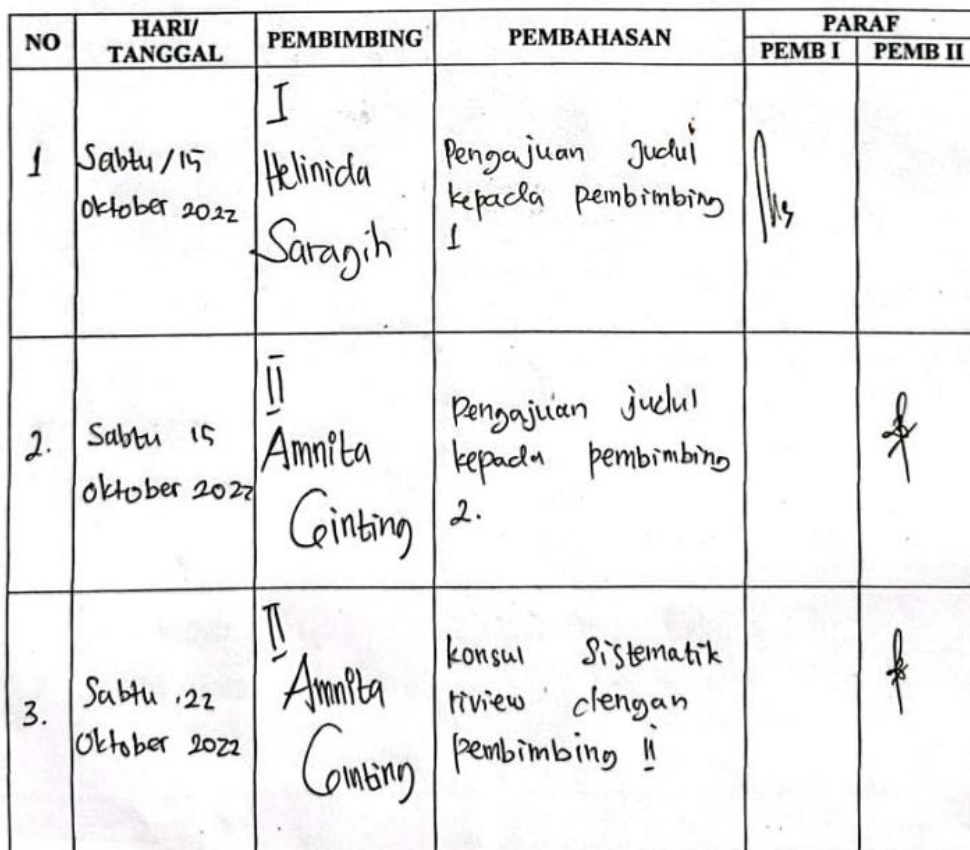 NO HARI/ PEMBIMBING PEMBAHASAN PARAF
TANGGAL PEMB I PEMB II
1
Sabtu / 15
Oktober 2022
I
Helinida
Saragih
Pengajuan Judul
kepada pembimbing
1
2.
Sabtu 15
Oktober 2022
II
Amnita
Ginting
Pengajuan judul
kepada pembimbing
2.
3.
Sabtu .22
Oktober 2022
II
Amnita
Ginting
konsul Sistematik
riview dengan
pembimbing II